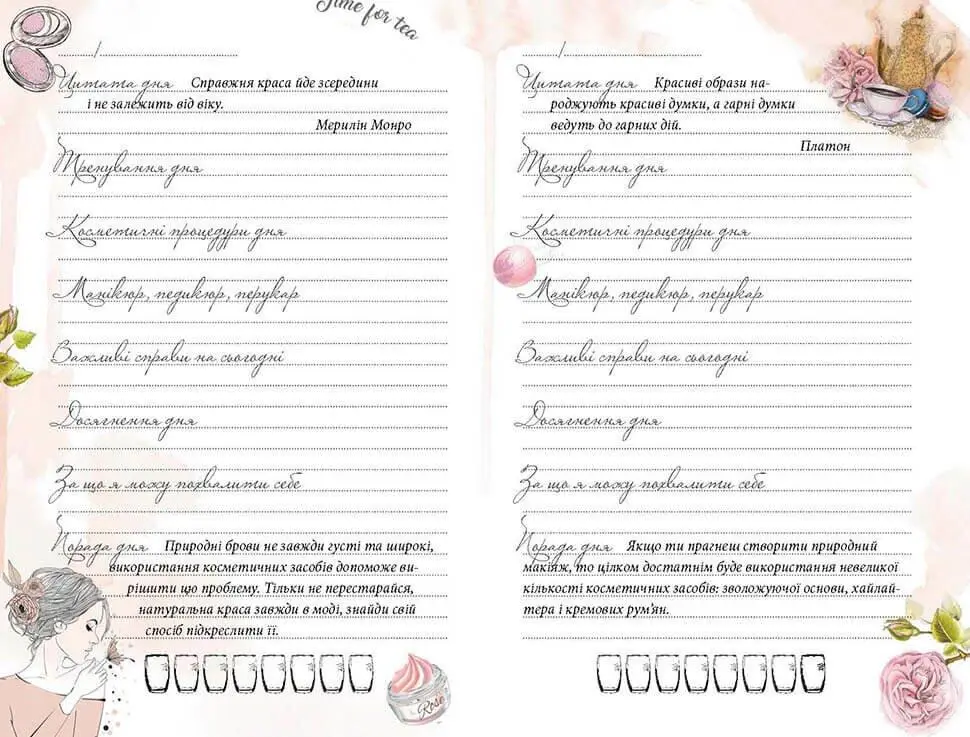 Time for tea
/
Цитата дня Справжня краса йде зсередини
і не залежить від віку.
Мерилін Монро
Тренування дня
Косметичні процедури дня
Манікюр, педикюр, перукар
Важливі справи на сьогодні
Досягнення дня
За що я можу похвалити себе
Порада дня Природні брови не завжди густі та широкі,
використання косметичних засобів допоможе ви-
рішити цю проблему. Тільки не перестарайся,
натуральна краса завжди в моді, знайди свій
спосіб підкреслити її.
Rose
/
Цитата дня Красиві образи на-
роджують красиві думки, а гарні думки
ведуть до гарних дій.
Платон
Тренування дня
Косметичні процедури дня
Манікюр, педикюр, перукар
Важливі справи на сьогодні
Досягнення дня
За що я можу похвалити себе
Порада дня Якщо ти прагнеш створити природний
макіяж, то цілком достатнім буде використання невеликої
кількості косметичних засобів: зволожуючої основи, хайлай-
тера і кремових рум'ян.